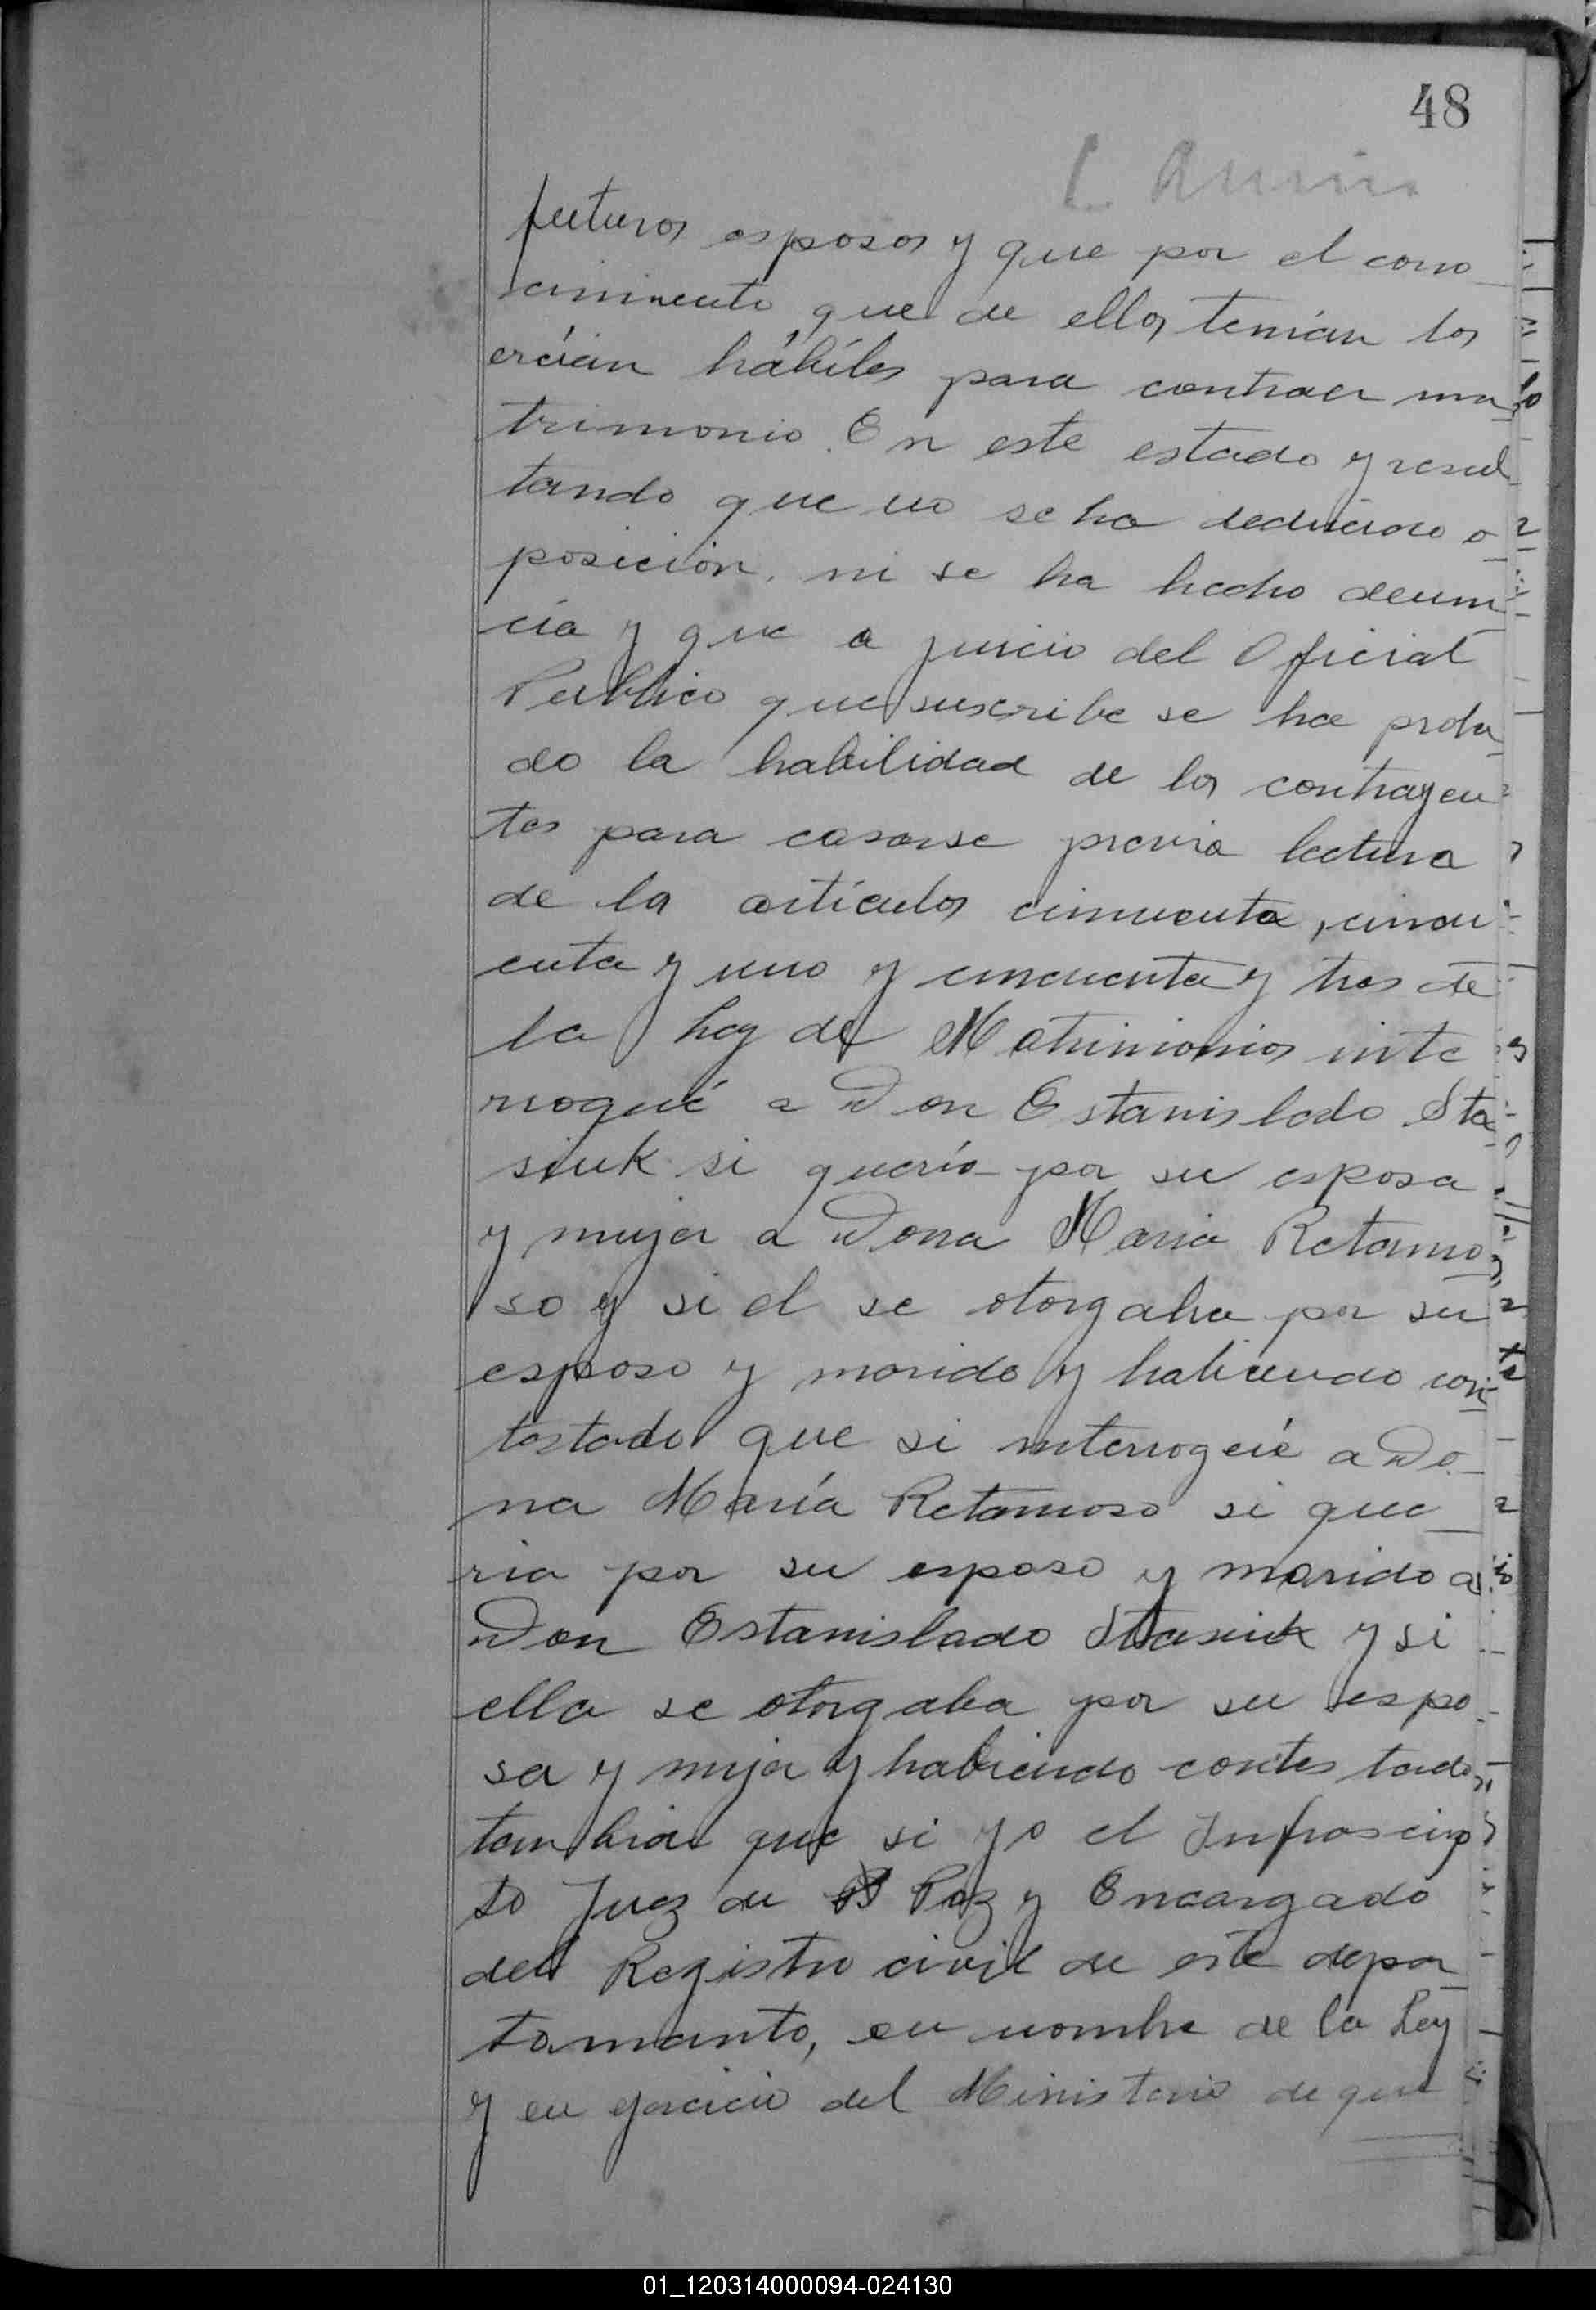 48
futuros esposos y que por el cono
cimiento que de ellos tenían los
creían hábiles para contraer ma
trimonio. En este estado y resul
tando que no se ha deducido o
posición, ni se ha hecho denun
cia y que a juicio del Oficial
Publico que suscribe se ha proba
do la habilidad de los contrayen
tes para casarse previa lectura
de los artículos cincuenta, cincu
enta y uno y cincuenta y tres de
la Ley de Matrimonios inte
rrogué a Don Estanislado Sta
siuk si quería por su esposa
y mujer a Dona Maria Retamo
so y si el se otorgaba por su
esposo y marido y habiendo con
testado que si interrogué a Do
na María Retamoso si que
ria por su esposo y marido a
Don Estanislado Stasiuk y si
ella se otorgaba por su espo
sa y mujer y habiendo contestado
tambien que si yo el Infrascrip
to Juez de Paz y Encargado
del Registro civil de este depar
tamento, en nombre de la Ley
y en ejercicio del Ministerio de que
01_120314000094-024130